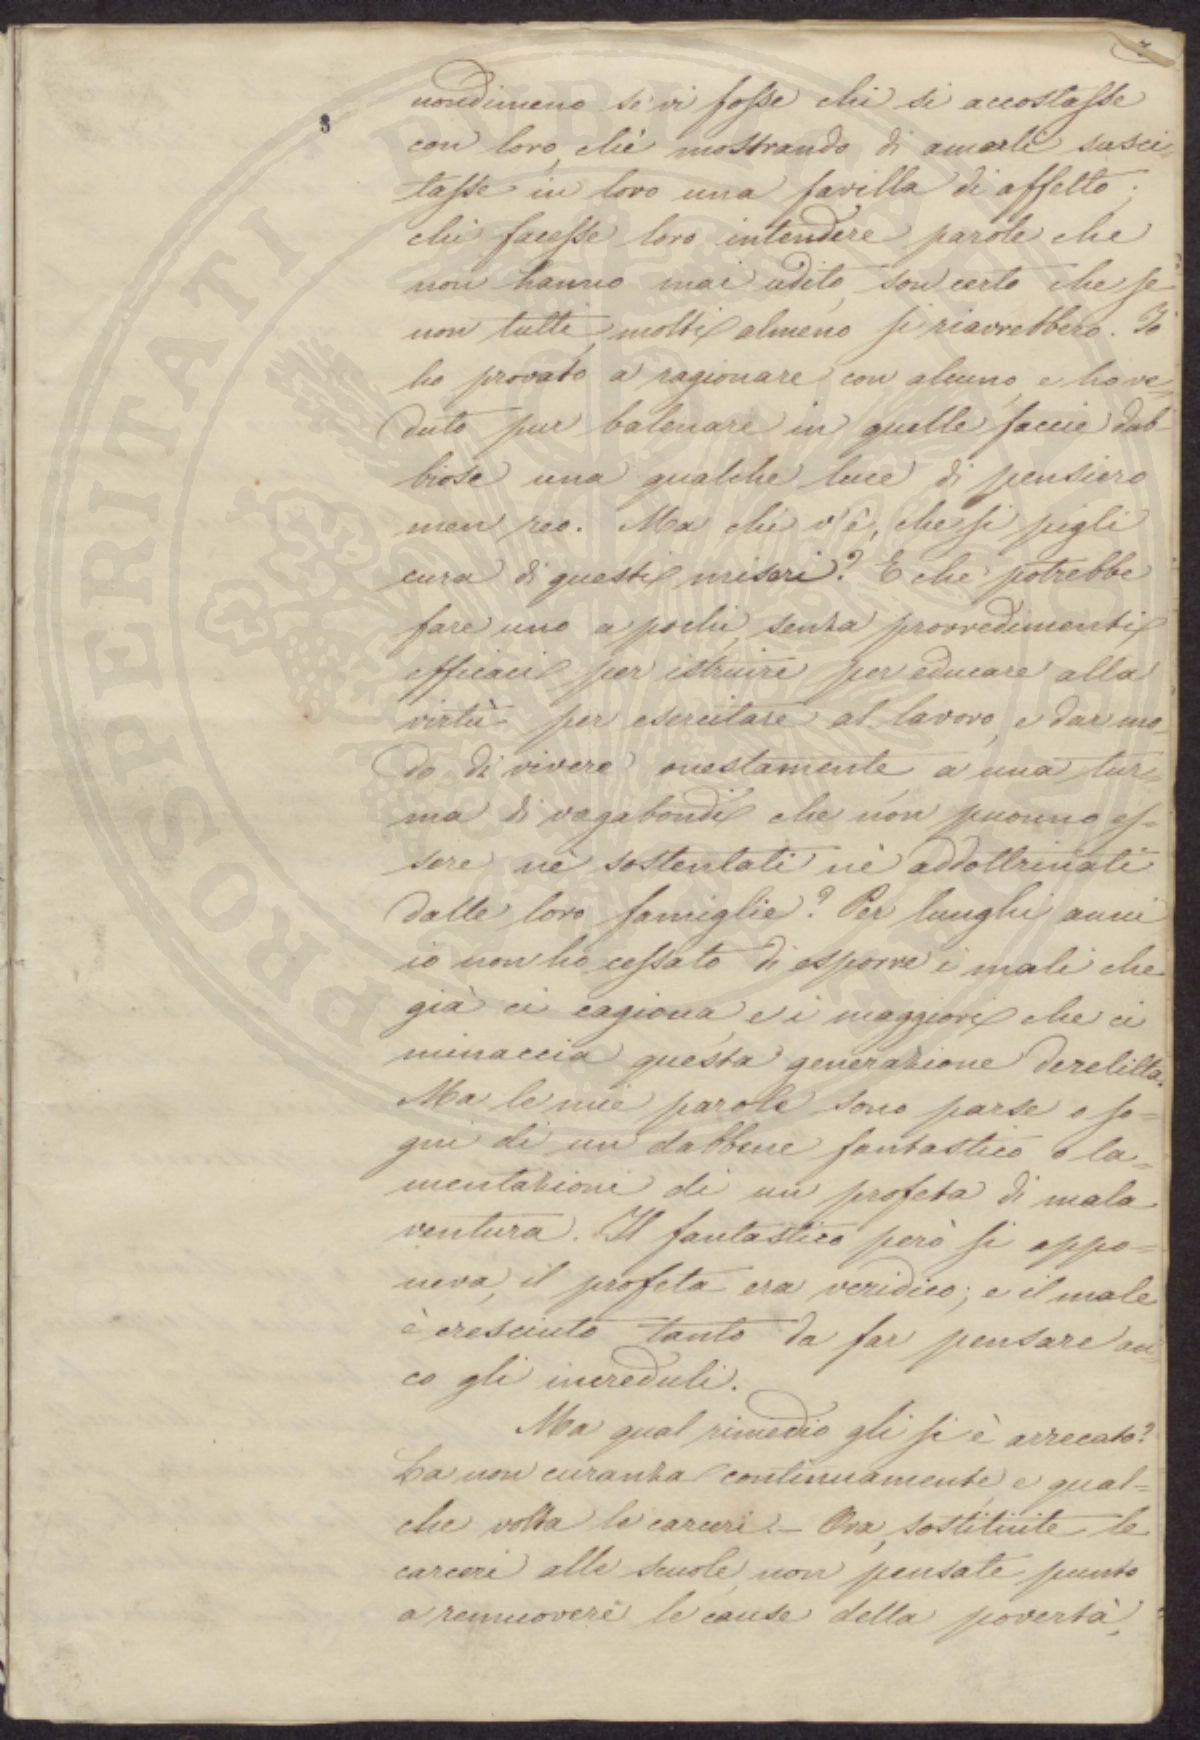 nondimeno se vi fosse chi si accostasse
con loro, chè mostrando di amarli susci-
tasse in loro una favilla di affetto;
chi facesse loro intendere parole che
non hanno mai udito, son certo che se
non tutti, molti almeno si riavrebbero. Io
ho provato a ragionare con alcuno, e ho ve-
duto pur balenare in quelle faccie dub-
biose una qualche luce di pensiero
men reo. Ma chi v'è, che si pigli
cura di questi miseri? E che potrebbe
fare uno a pochi, senza provvedimenti
efficaci per istruire per educare alla
virtù per esercitare al lavoro, e dar mo-
do di vivere onestamente a una tur-
ma di vagabondi che non puonno es-
sere nè sostentati nè addottrinati
dalle loro famiglie? Per lunghi anni
io non ho cessato di esporre i mali che
già ci cagiona, e i maggiori che ci
minaccia questa generazione derelitta.
Ma le mie parole sono parse o so-
gni di un dabbene fantastico o la-
mentazioni di un profeta di mala
ventura. Il fantastico però si appo-
neva, il profeta era veridico; e il male
è cresciuto tanto da far pensare an-
co gli increduli.
Ma qual rimedio gli si è arrecato?
La non curanza continuamente, e qual-
che volta le carceri. – Ora, sostituite le
carceri alle scuole, non pensate punto
a remuovere le cause della povertà,
PROSPERITATI PUBLICAE